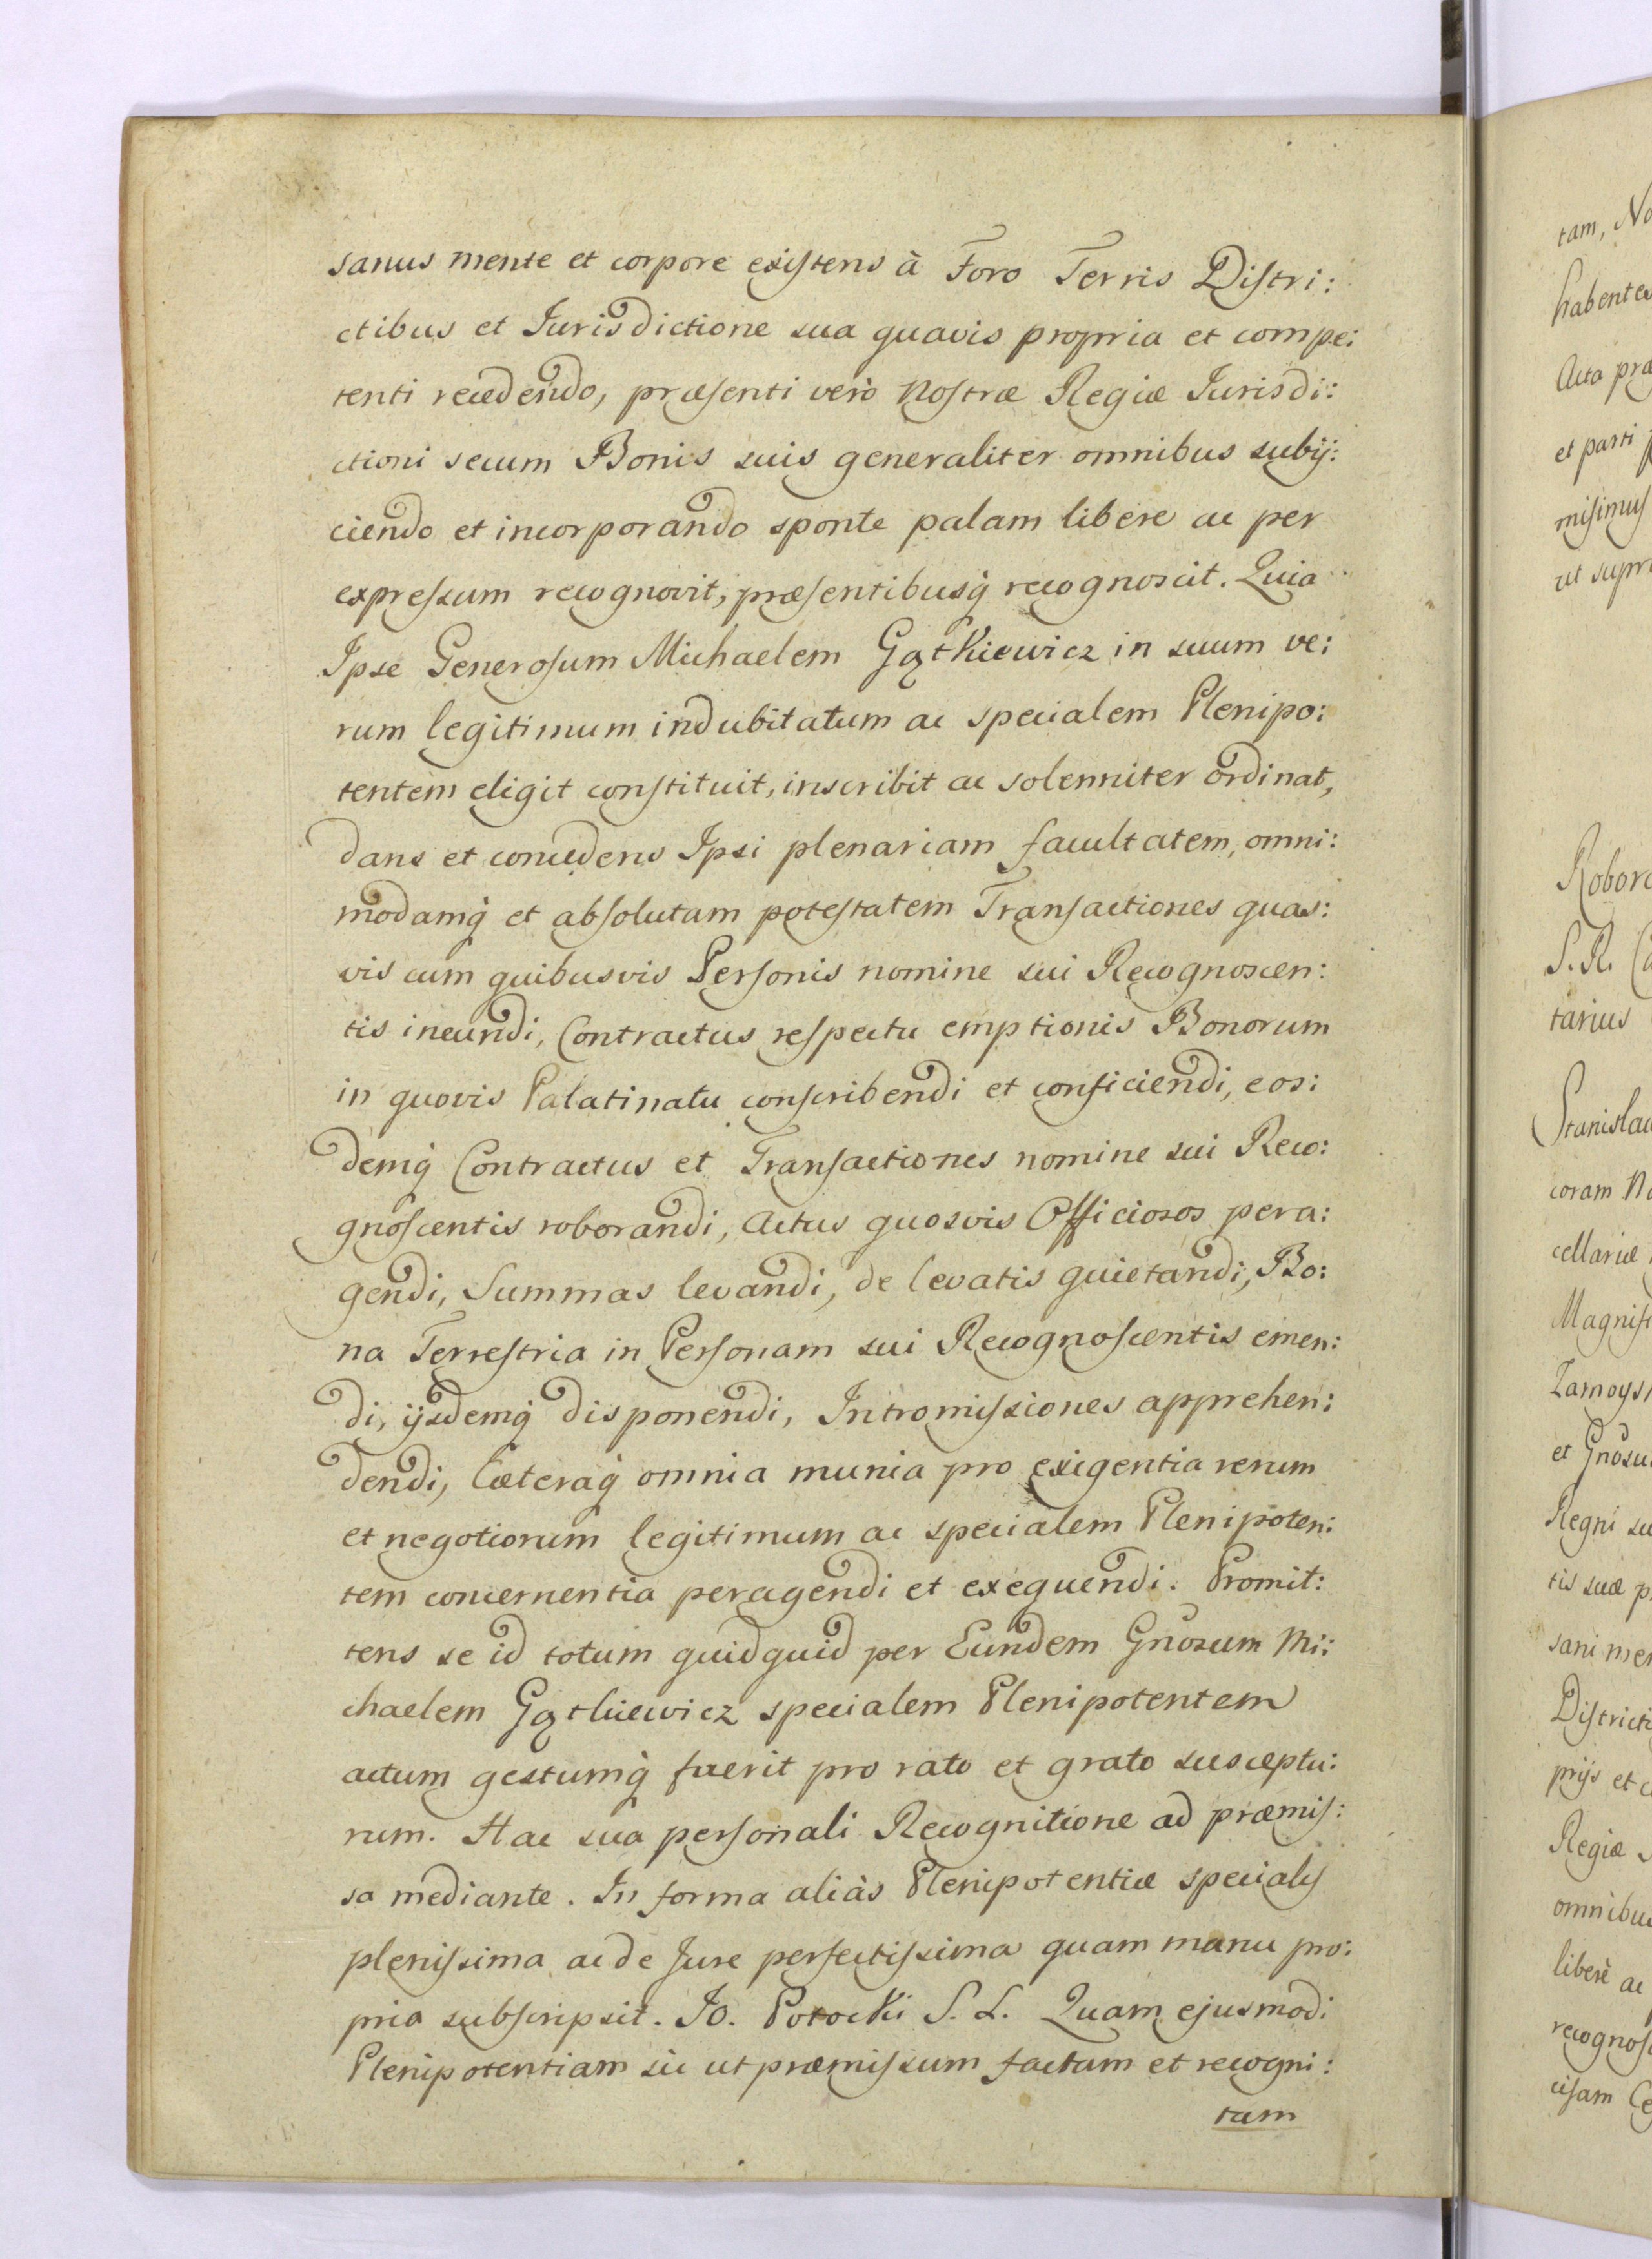 sanus mente et corpore existens à Foro Terris Distri:
ctibus et Jurisdictione sua quavis propria et compe:
tenti recedendo, præsenti verò Nostræ Regiæ Jurisdi:
ctioni secum Bonis suis generaliter omnibus subij:
ciendo et incorporando sponte palam libere ac per
expressum recognovit, præsentibusq́ recognoscit. Quia
Ipse Generosum Michaelem Gątkiewicz in suum ve:
rum legitimum indubitatum ac specialem Plenipo:
tentem eligit constituit, inscribit ac solenniter ordinat,
dans et concedens Ipsi plenariam facultatem, omni:
modamq́ et absolutam potestatem Transactiones quas:
vis cum quibusvis Personis nomine sui Recognoscen:
tis ineundi, Contractus respectu emptionis Bonorum
in quovis Palatinatu conscribendi et conficiendi, eos:
demq́ Contractus et Transactiones nomine sui Reco:
gnoscentis roborandi, Actus quosvis Officiosos pera:
gendi, Summas levandi, de levatis quietandi, Bo:
na Terrestria in Personam sui Recognoscentis emen:
di, ijsdemq́ disponendi, Intromissiones apprehen:
dendi, Cæteraq́ omnia munia pro exigentia rerum
et negotiorum legitimum ac specialem Plenipoten:
tem concernentia peragendi et exequendi. Promit:
tens se id totum quidquid per Eundem Gnosum Mi:
chaelem Gątkiewicz specialem Plenipotentem
actum gestumq́ fuerit pro rato et grato susceptu:
rum. Hac sua personali Recognitione ad præmis:
sa mediante. In forma aliàs Plenipotentiæ specialis
plenissima ac de Jure perfectissima quam manu pro:
pria subscripsit. Jo. Potocki S. L. Quam ejusmodi
Plenipotentiam sic ut præmissum factam et recogni:
tam
tam, No
habentes
Acta præ
et parti
misimus
ut supr
Robora
S. R. Ca
tarius
Stanislau
coram No
cellariæ
Magnifi
Zamoysk
et Gnosu
Regni su
tis suæ p
sani men
Districti
prijs et c
Regiæ
omnibus
liberè ac
recognos
cisam Ce